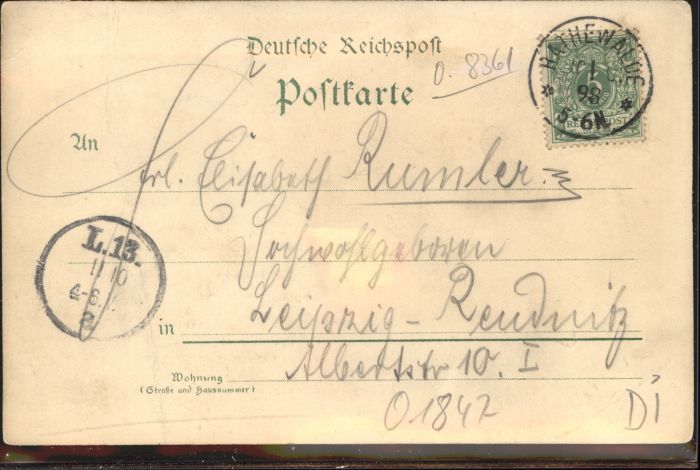 Deutsche Reichspost
0. 8361
Postkarte
RATHEWALDE
1
98
5-6N.
REICHSPOST
An
Frl. Elisabeth Rumler
Hochwohlgeboren
L.13.
11 10
4-6
in Leipzig-Reudnitz
Wohnung Albertstr 10. I
(Straße und Hausnummer)
01847
DI